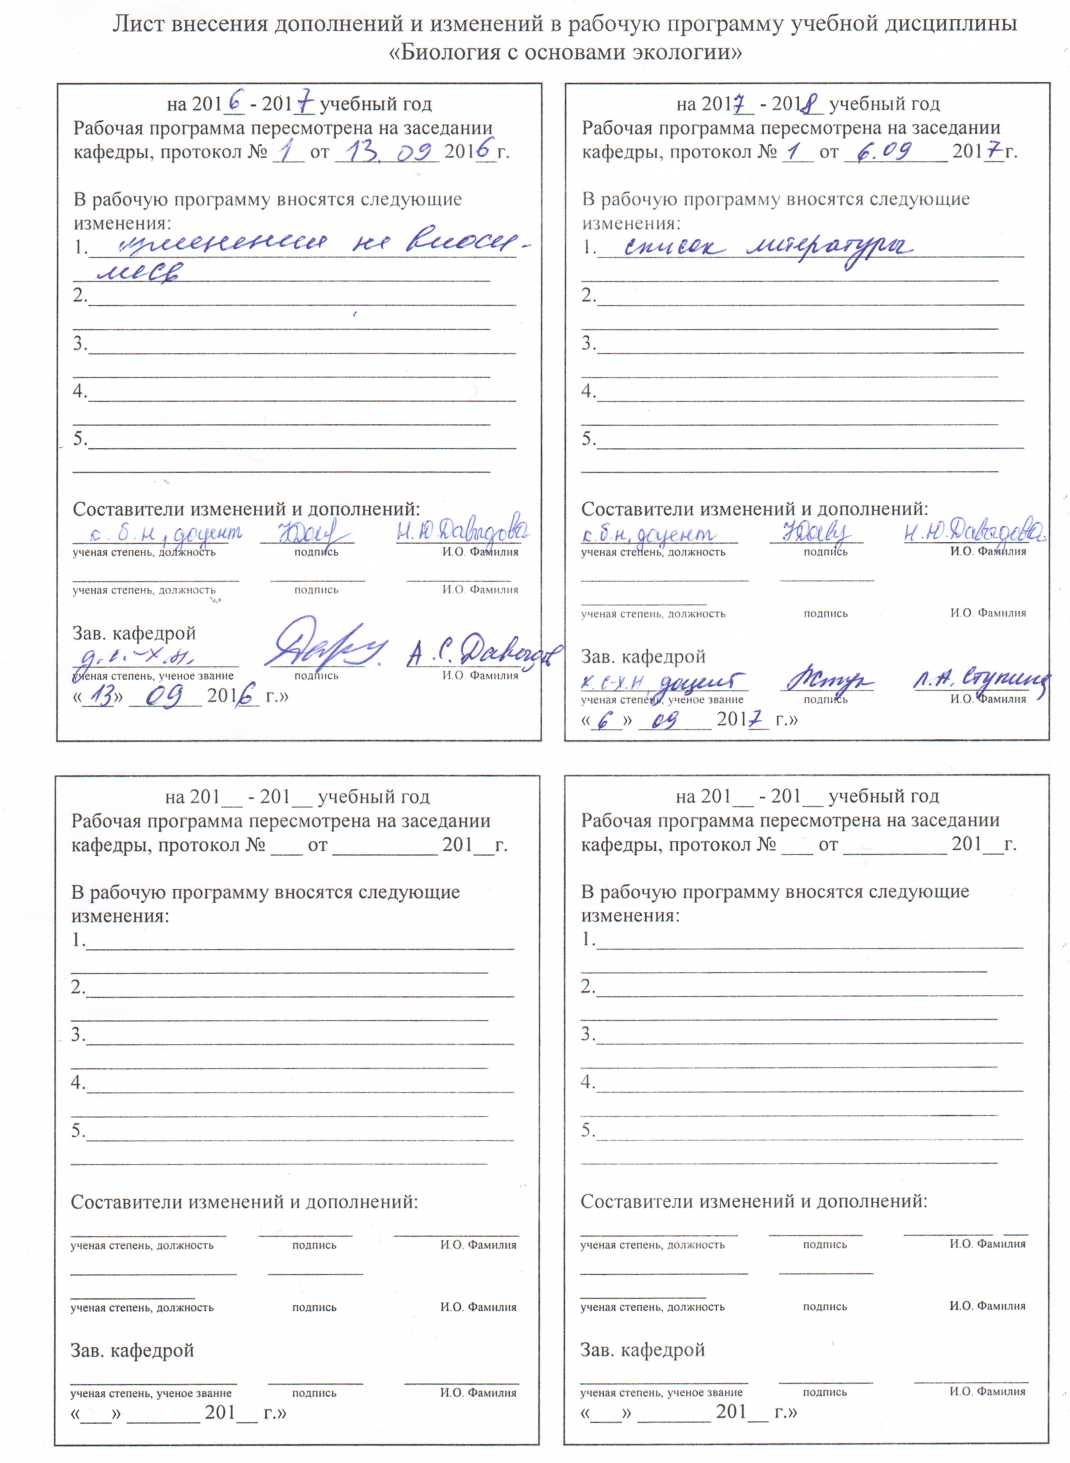 Лист внесения дополнений и изменений в рабочую программу учебной дисциплины
«Биология с основами экологии»
на 2016 - 2017 учебный год
Рабочая программа пересмотрена на заседании
кафедры, протокол № 1 от 13.09 2016 г.
В рабочую программу вносятся следующие
изменения:
1. изменения не вноси-
лись
2.
3.
4.
5.
Составители изменений и дополнений:
к.б.н, доцент Н.Ю Давыдова
ученая степень, должность подпись И.О. Фамилия
ученая степень, должность подпись И.О. Фамилия
Зав. кафедрой
д.с.-х.н. А.С. Давыдов
ученая степень, ученое звание подпись И.О Фамилия
«13» 09 2016 г.»
на 2017 - 2018 учебный год
Рабочая программа пересмотрена на заседании
кафедры, протокол № 1 от 6.09 2017 г.
В рабочую программу вносятся следующие
изменения:
1. список литературы
2.
3.
4.
5.
Составители изменений и дополнений:
к.б.н, доцент Н.Ю.Давыдова
ученая степень, должность подпись И.О. Фамилия
ученая степень, должность подпись И.О. Фамилия
Зав. кафедрой
к.с-х.н, доцент Л.А. Ступина
ученая степень, ученое звание подпись И.О. Фамилия
«6» 09 2017 г.»
на 201__ - 201__ учебный год
Рабочая программа пересмотрена на заседании
кафедры, протокол № ___ от __________ 201__г.
В рабочую программу вносятся следующие
изменения:
1.
2.
3.
4.
5.
Составители изменений и дополнений:
ученая степень, должность подпись И.О. Фамилия
ученая степень, должность подпись И.О. Фамилия
Зав. кафедрой
ученая степень, ученое звание подпись И.О. Фамилия
«___» _______ 201__ г.»
на 201__ - 201__ учебный год
Рабочая программа пересмотрена на заседании
кафедры, протокол № ___ от __________ 201__г.
В рабочую программу вносятся следующие
изменения:
1.
2.
3.
4.
5.
Составители изменений и дополнений:
ученая степень, должность подпись И.О. Фамилия
ученая степень, должность подпись И.О. Фамилия
Зав. кафедрой
ученая степень, ученое звание подпись И.О. Фамилия
«___» _______ 201__ г.»